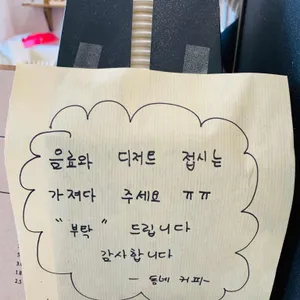 음료와 디저트 접시는
가져다 주세요 ㅠㅠ
"부탁" 드립니다
감사합니다
- 동네 커피-